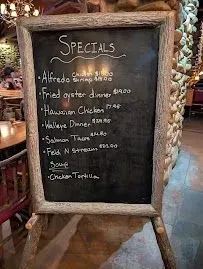 Specials
Chicken $18.00
• Alfredo Shrimp $19.00
• Fried oyster dinner $19.00
• Hawaiian Chicken 17.95
• Walleye Dinner
• Salmon Tacos
• Field N Stream
Soup
• Chicken Tortilla